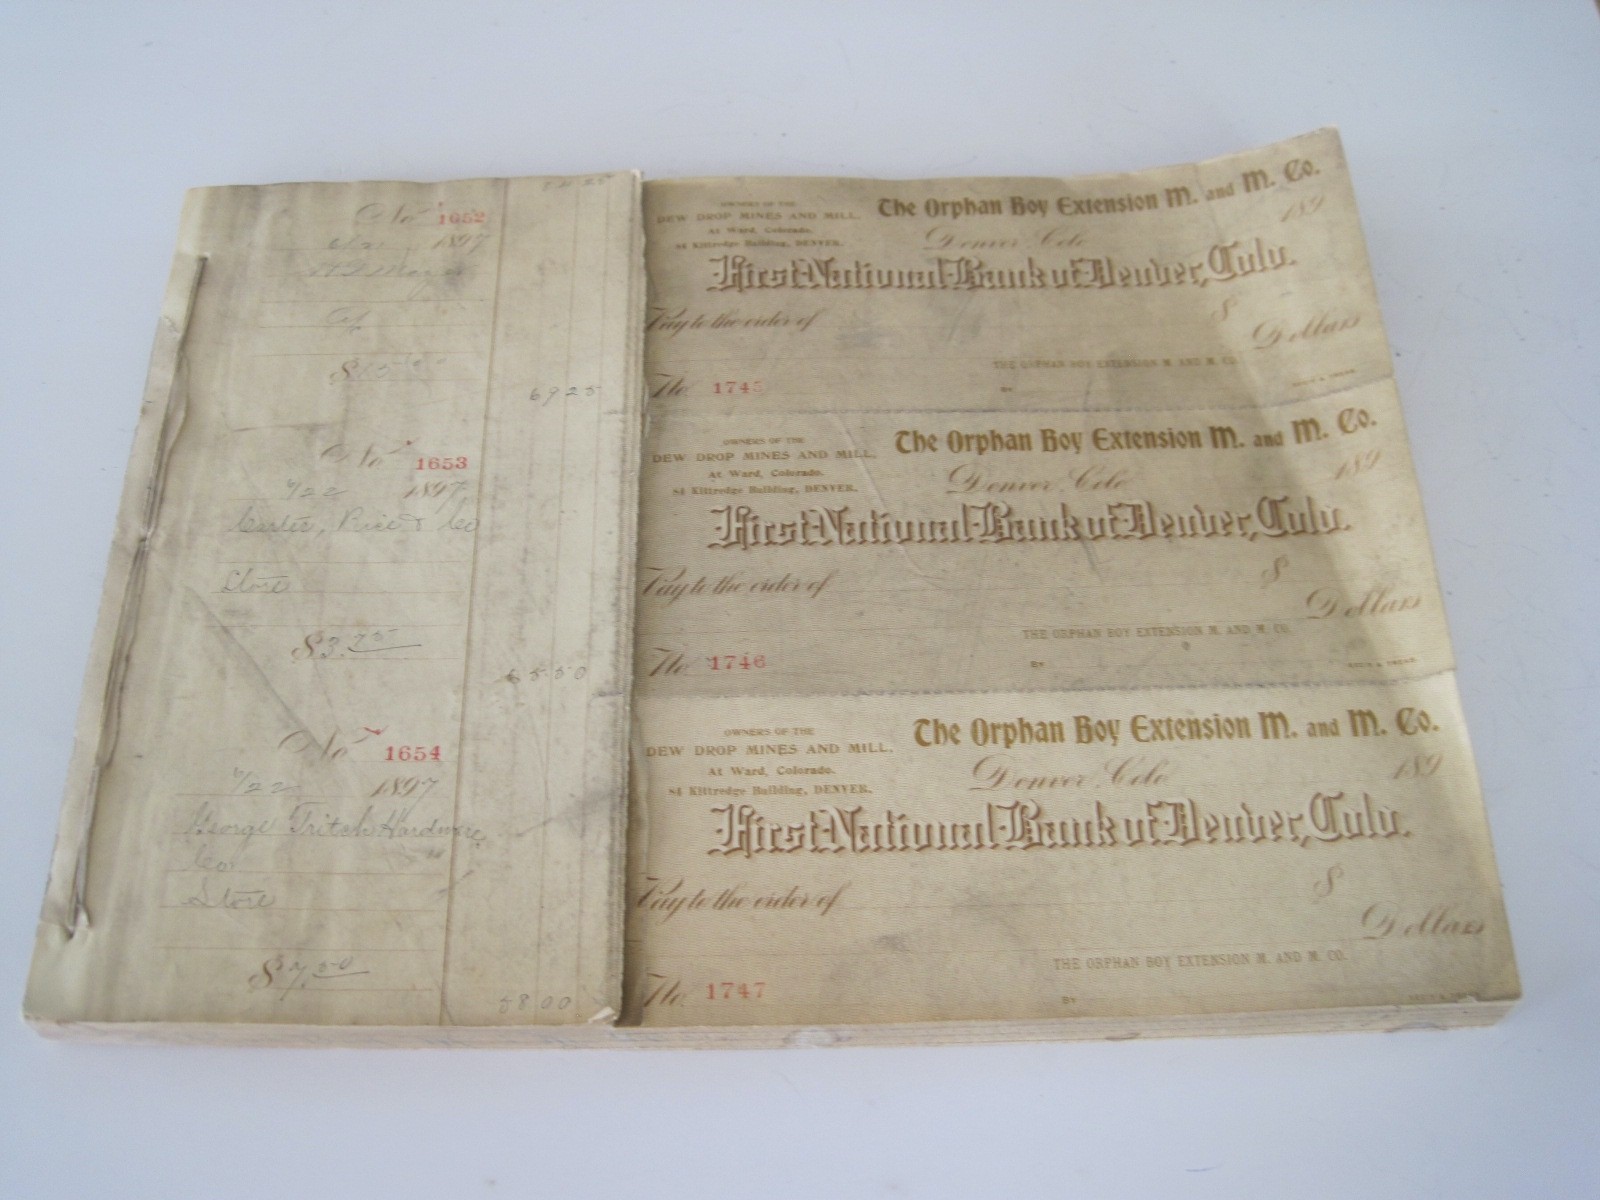 No 1652
1897
$15
6925
No 1653
6/22 1897
Carter, Rice & Co
Store
$3.75
6550
No 1654
6/22 1897
George Tritch Hardware
Co
Store
$7.50
5800
OWNERS OF THE
DEW DROP MINES AND MILL,
At Ward, Colorado.
84 Kittredge Building, DENVER.
The Orphan Boy Extension M. and M. Co.
Denver, Colo 189
First National Bank of Denver, Colo.
Pay to the order of $
Dollars
THE ORPHAN BOY EXTENSION M. AND M. CO.
No. 1745 BY
OWNERS OF THE
DEW DROP MINES AND MILL,
At Ward, Colorado.
84 Kittredge Building, DENVER.
The Orphan Boy Extension M. and M. Co.
Denver, Colo 189
First National Bank of Denver, Colo.
Pay to the order of $
Dollars
THE ORPHAN BOY EXTENSION M. AND M. CO.
No. 1746 BY
OWNERS OF THE
DEW DROP MINES AND MILL,
At Ward, Colorado.
84 Kittredge Building, DENVER.
The Orphan Boy Extension M. and M. Co.
Denver, Colo 189
First National Bank of Denver, Colo.
Pay to the order of $
Dollars
THE ORPHAN BOY EXTENSION M. AND M. CO.
No. 1747 BY